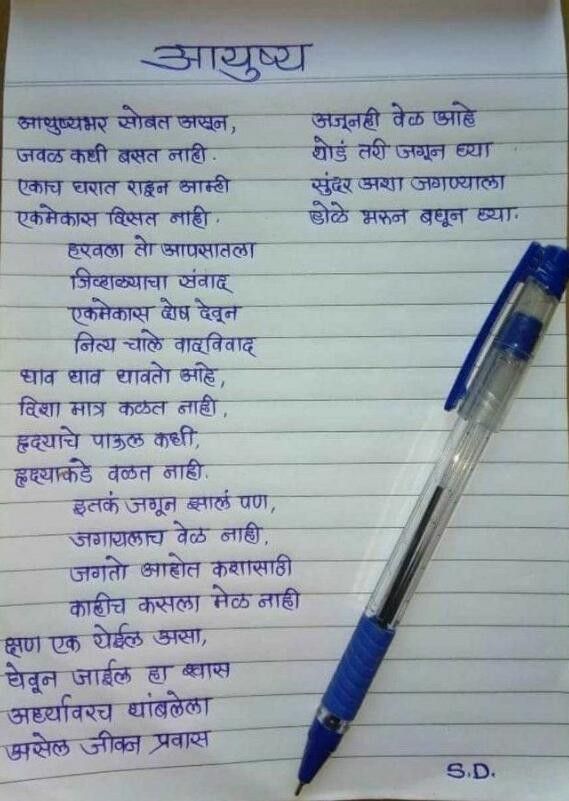 आयुष्य
आयुष्यभर सोबत असून,
जवळ कधी बसत नाही.
एकाच घरात राहून आम्ही
एकमेकास दिसत नाही.
हरवला तो आपसातला
जिव्हाळ्याचा संवाद
एकमेकास दोष देवून
नित्य चाले वादविवाद
धाव धाव धावतो आहे,
दिशा मात्र कळत नाही,
हृदयाचे पाऊल कधी,
हृदयाकडे वळत नाही.
इतकं जगून झालं पण,
जगायलाच वेळ नाही,
जगतो आहोत कशासाठी
काहीच कसला मेळ नाही
क्षण एक येईल असा,
घेवून जाईल हा श्वास
अर्ध्यावरच थांबलेला
असेल जीवन प्रवास
अजूनही वेळ आहे
थोडं तरी जगून घ्या
सुंदर अशा जगण्याला
डोळे भरुन बघून घ्या.
S.D.